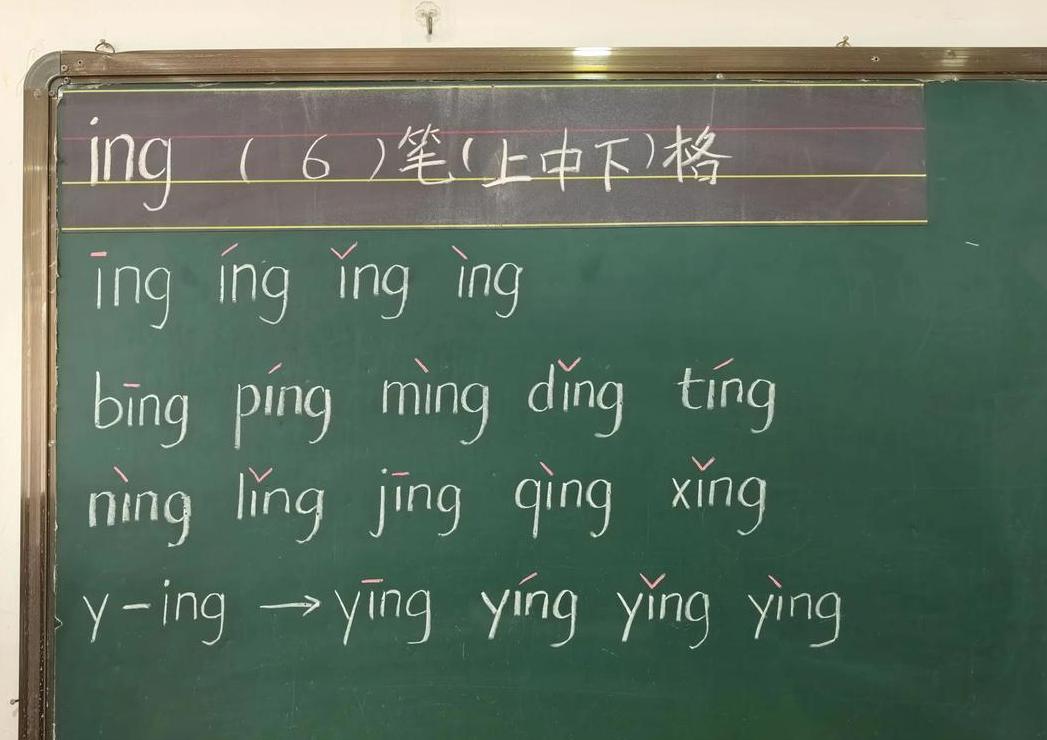 ing ( 6 )笔(上中下)格
īng íng ǐng ìng
bīng píng mìng dǐng tíng
nìng lǐng jīng qìng xǐng
y-ing →yīng yíng yǐng yìng